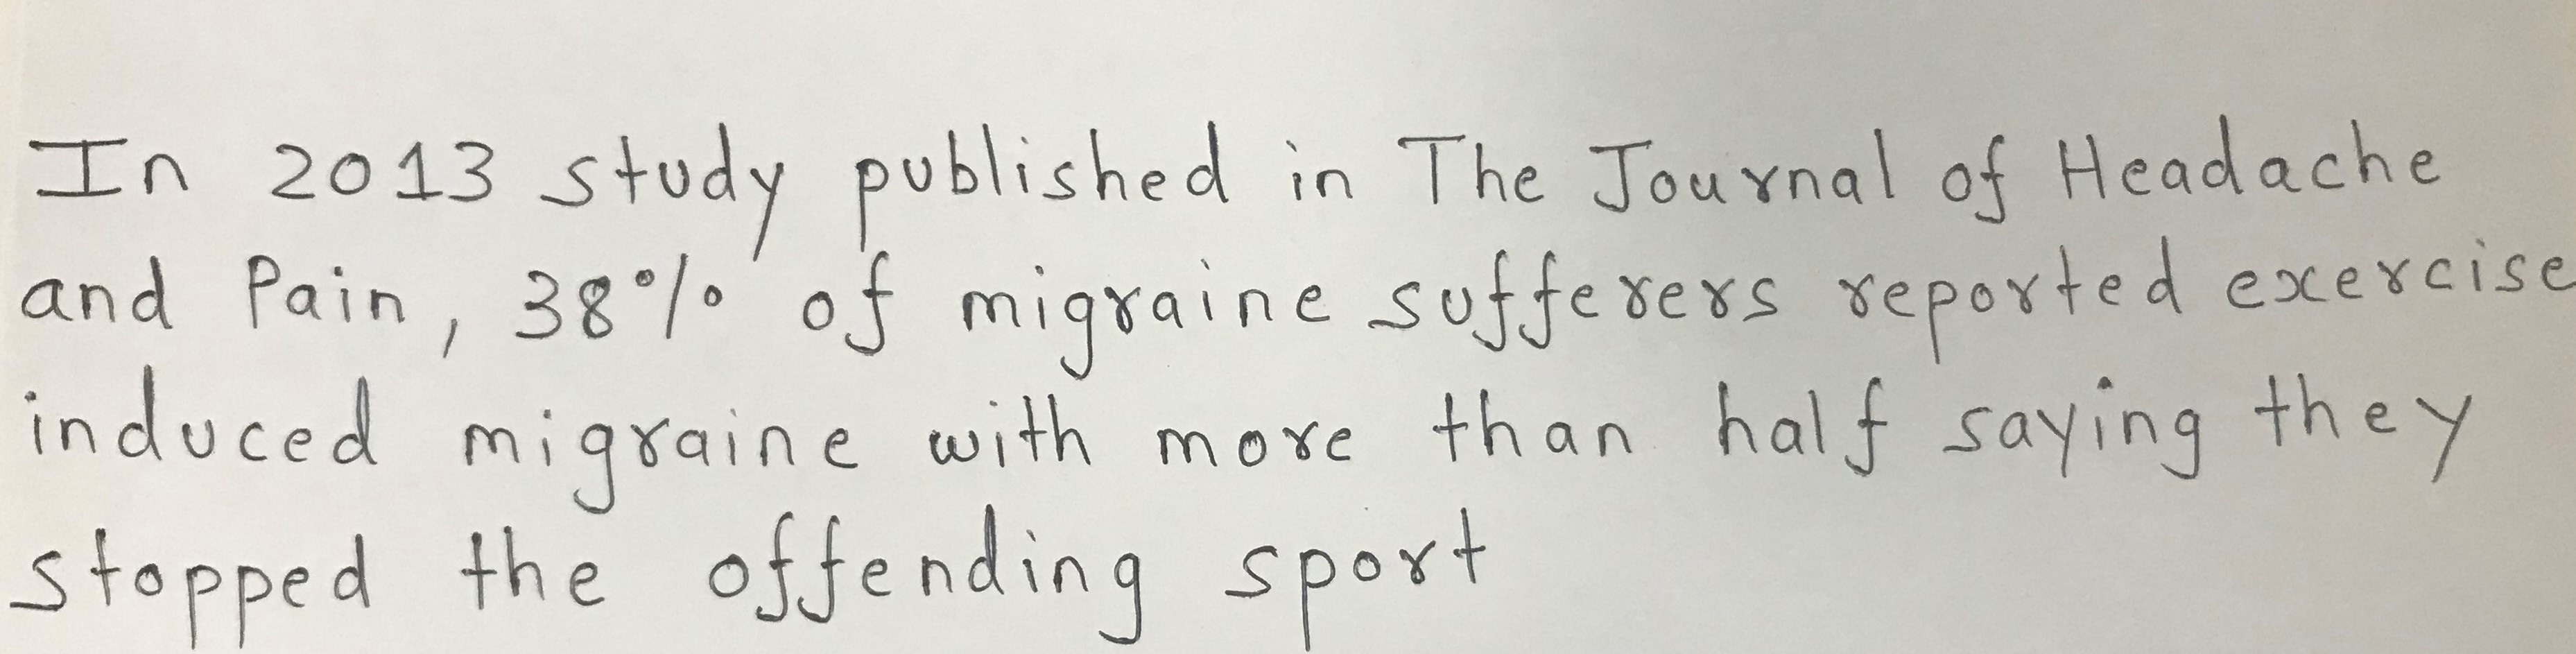 In 2013 study published in The Journal of Headache
and Pain, 38% of migraine sufferers reported exercise
induced migraine with more than half saying they
stopped the offending sport